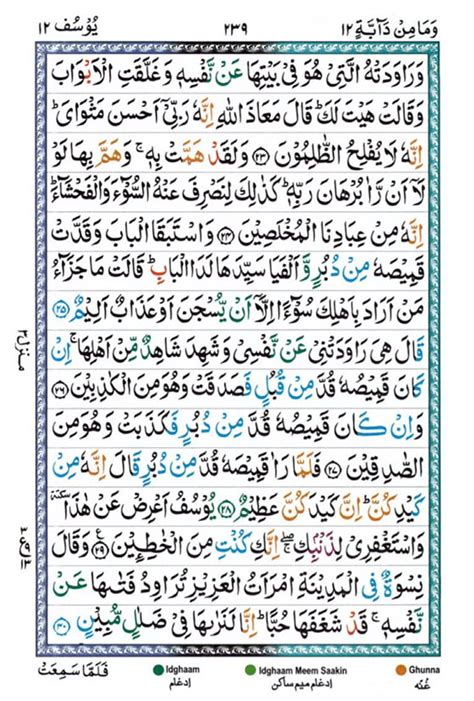 وَمَا مِنْ دَآبَّةٍ ١٢ ٢٣٩ يُوْسُف ١٢
وَرَاوَدَتْهُ الَّتِيْ هُوَ فِيْ بَيْتِهَا عَنْ نَّفْسِهٖ وَغَلَّقَتِ الْاَبْوَابَ
وَقَالَتْ هَيْتَ لَكَ ؕ قَالَ مَعَاذَ اللّٰهِ اِنَّهٗ رَبِّيْٓ اَحْسَنَ مَثْوَايَ ؕ
اِنَّهٗ لَا يُفْلِحُ الظّٰلِمُوْنَ ﴿۲۳﴾ وَلَقَدْ هَمَّتْ بِهٖ ۚ وَهَمَّ بِهَا لَوْ
لَاۤ اَنْ رَّاٰ بُرْهَانَ رَبِّهٖ ؕ كَذٰلِكَ لِنَصْرِفَ عَنْهُ السُّوْٓءَ وَالْفَحْشَآءَ ؕ
اِنَّهٗ مِنْ عِبَادِنَا الْمُخْلَصِيْنَ ﴿۲۴﴾ وَاسْتَبَقَا الْبَابَ وَقَدَّتْ
قَمِيْصَهٗ مِنْ دُبُرٍ وَّاَلْفَيَا سَيِّدَهَا لَدَا الْبَابِ ؕ قَالَتْ مَا جَزَآءُ
مَنْ اَرَادَ بِاَهْلِكَ سُوْٓءًا اِلَّاۤ اَنْ يُّسْجَنَ اَوْ عَذَابٌ اَلِيْمٌ ﴿۲۵﴾
قَالَ هِيَ رَاوَدَتْنِيْ عَنْ نَّفْسِيْ وَشَهِدَ شَاهِدٌ مِّنْ اَهْلِهَا ۚ اِنْ
كَانَ قَمِيْصُهٗ قُدَّ مِنْ قُبُلٍ فَصَدَقَتْ وَهُوَ مِنَ الْكٰذِبِيْنَ ﴿۲۶﴾
وَاِنْ كَانَ قَمِيْصُهٗ قُدَّ مِنْ دُبُرٍ فَكَذَبَتْ وَهُوَ مِنَ
الصّٰدِقِيْنَ ﴿۲۷﴾ فَلَمَّا رَاٰ قَمِيْصَهٗ قُدَّ مِنْ دُبُرٍ قَالَ اِنَّهٗ مِنْ
كَيْدِكُنَّ ؕ اِنَّ كَيْدَكُنَّ عَظِيْمٌ ﴿۲۸﴾ يُوْسُفُ اَعْرِضْ عَنْ هٰذَا ٚ
وَاسْتَغْفِرِيْ لِذَنْۢبِكِ ۖۚ اِنَّكِ كُنْتِ مِنَ الْخٰطِـِٕيْنَ ﴿۲۹﴾ وَقَالَ
نِسْوَةٌ فِي الْمَدِيْنَةِ امْرَاَتُ الْعَزِيْزِ تُرَاوِدُ فَتٰىهَا عَنْ
نَّفْسِهٖ ۚ قَدْ شَغَفَهَا حُبًّا ؕ اِنَّا لَنَرٰىهَا فِيْ ضَلٰلٍ مُّبِيْنٍ ﴿۳۰﴾
منزل ٣
Idghaam Idghaam Meem Saakin Ghunna
فَلَمَّا سَمِعَتْ اِدغام اِدغام میم ساکن غُنّه